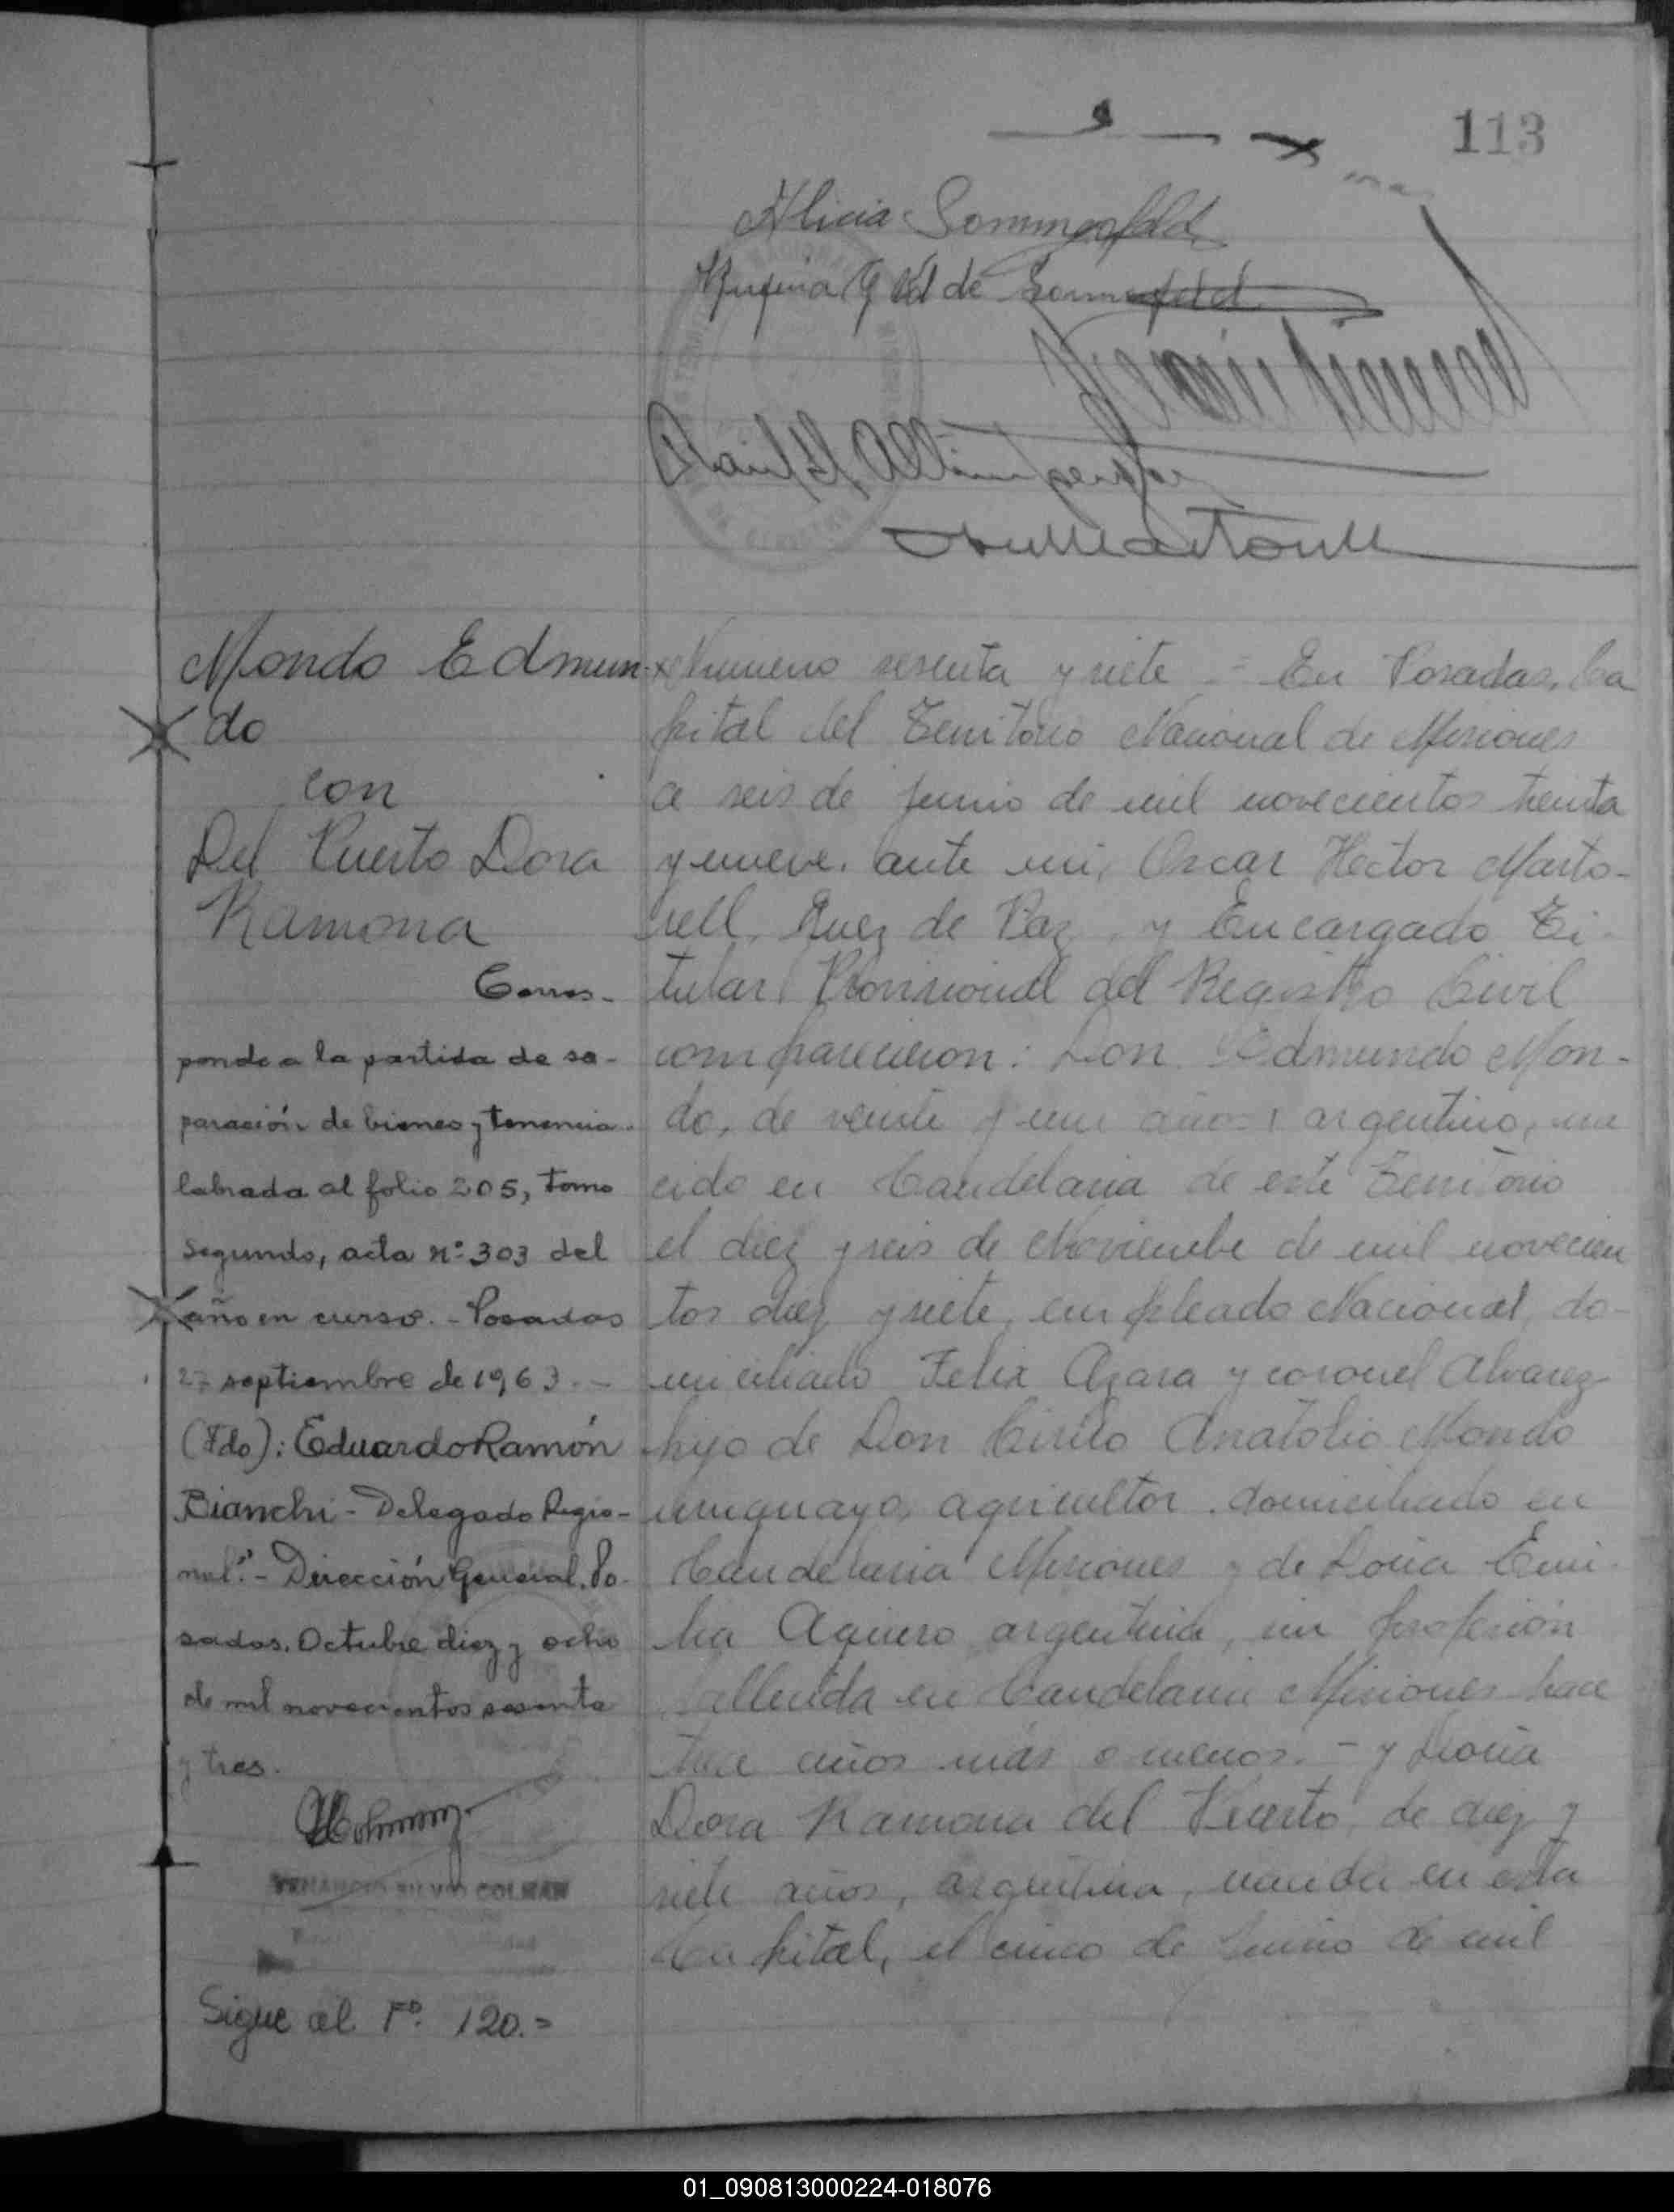 113
Alicia Sommerfeld
de Sommerfeld
Mondo Edmun-
do
con
Del Puerto Dora
Ramona
Corres-
ponde a la partida de se-
paración de bienes y tenencia
labrada al folio 205, tomo
Segundo, acta nº 303 del
año en curso. - Posadas
27 septiembre de 1963. -
(Fdo): Eduardo Ramón
Bianchi - Delegado Regio-
nal". - Dirección General. Po-
sadas. Octubre diez y ocho
de mil novecientos sesenta
y tres.
COLMAN
Sigue al Fº. 120.=
Numero sesenta y siete = En Posadas, Ca
pital del Territorio Nacional de Misiones
a seis de Junio de mil novecientos treinta
y nueve. ante mi, Oscar Hector Marto-
rell, Juez de Paz, y Encargado Ti-
tular Provisional del Registro Civil
comparecieron: Don Edmundo Mon-
do, de veinte y un años, argentino, na
cido en Candelaria de este Territorio
el diez y seis de Noviembre de mil novecien
tos diez y siete, empleado Nacional, do-
miciliado Felix Azara y coronel Alvarez
hijo de Don Cirilo Anatolio Mondo
uruguayo, agricultor. domiciliado en
Candelaria Misiones y de Doña Emi-
lia Aguero argentina, sin profesión
fallecida en Candelaria Misiones hace
años más o menos. - y Doña
Dora Ramona del Puerto, de diez y
siete años, argentina, nacida en esta
Capital, el cinco de Junio de mil
01_090813000224-018076